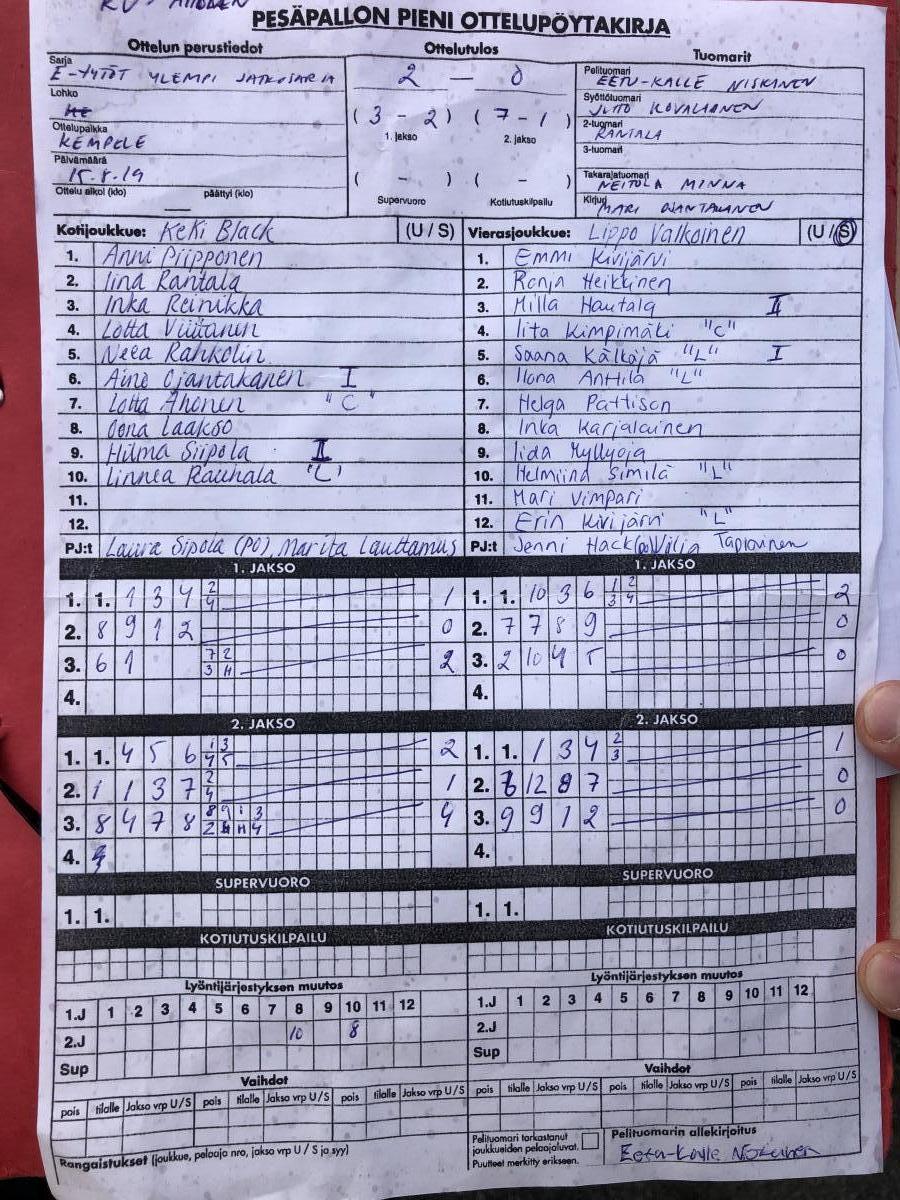 PESÄPALLON PIENI OTTELUPÖYTÄKIRJA
Ottelun perustiedot Ottelutulos Tuomarit
Sarja
E-TYTÖT YLEMPI JATKOSARJA
Lohko
Ottelupaikka
KEMPELE
Päivämäärä
15.8.19
Ottelu alkoi (klo) päättyi (klo)
2 — 0
( 3 - 2 ) ( 7 - 1 )
1. jakso 2. jakso
( - ) ( - )
Supervuoro Kotiutuskilpailu
Pelituomari
EETU-KALLE NISKANEN
Syöttötuomari
KOVALAINEN
2-tuomari
RANTALA
3-tuomari
Takarajatuomari
NEITOLA MINNA
Kirjuri
MARI OJANTAKANEN
Kotijoukkue: KeKi Black (U / S)
1. Anni Piipponen
2. Iina Rantala
3. Inka Reinikka
4. Lotta Viitanen
5. Neea Rahkolin
6. Aino Ojantakanen I
7. Lotta Ahonen "C"
8. Oona Laakso
9. Hilma Siipola II
10. Linnea Rauhala "L"
11.
12.
PJ:t Laura Sipola (PO), Marita Lauttamus
Vierasjoukkue: Lippo Valkoinen (U / S)
1. Emmi Kivijärvi
2. Ronja Heikkinen
3. Milla Hautala II
4. Iita Kimpimäki "C"
5. Saana Kälkäjä "L" I
6. Ilona Anttila "L"
7. Helga Pattison
8. Inka Karjalainen
9. Iida Myllyoja
10. Helmiina Similä "L"
11. Mari Vimpari
12. Erin Kivijärvi "L"
PJ:t Jenni Hack (po) Vilja Tapioinen
1. JAKSO 1. JAKSO
1. 1. 1 3 4 2 4 1
2. 8 9 1 2 0
3. 6 1 7 2 3 H 2
4.
1. 1. 10 3 6 1 2 3 4 2
2. 7 7 8 9 0
3. 2 10 4 5 0
4.
2. JAKSO 2. JAKSO
1. 1. 4 5 6 1 3 4 5 2
2. 1 1 3 7 2 4 1
3. 8 4 7 8 8 9 1 3 2 H H 4 4
4.
1. 1. 1 3 4 2 3 1
2. 6 12 8 7 0
3. 9 9 1 2 0
4.
SUPERVUORO SUPERVUORO
1. 1.
1. 1.
KOTIUTUSKILPAILU KOTIUTUSKILPAILU
Lyöntijärjestyksen muutos Lyöntijärjestyksen muutos
1.J 1 2 3 4 5 6 7 8 9 10 11 12
2.J 10 8
Sup
1.J 1 2 3 4 5 6 7 8 9 10 11 12
2.J
Sup
Vaihdot Vaihdot
pois tilalle Jakso vrp U / S pois tilalle Jakso vrp U / S pois tilalle Jakso vrp U / S
pois tilalle Jakso vrp U / S pois tilalle Jakso vrp U / S pois tilalle Jakso vrp U / S
Rangaistukset (joukkue, pelaaja nro, jakso vrp U / S ja syy)
Pelituomari tarkastanut
joukkueiden pelaajaluvat.
Puutteet merkitty erikseen.
Pelituomarin allekirjoitus
Eetu-Kalle Niskanen